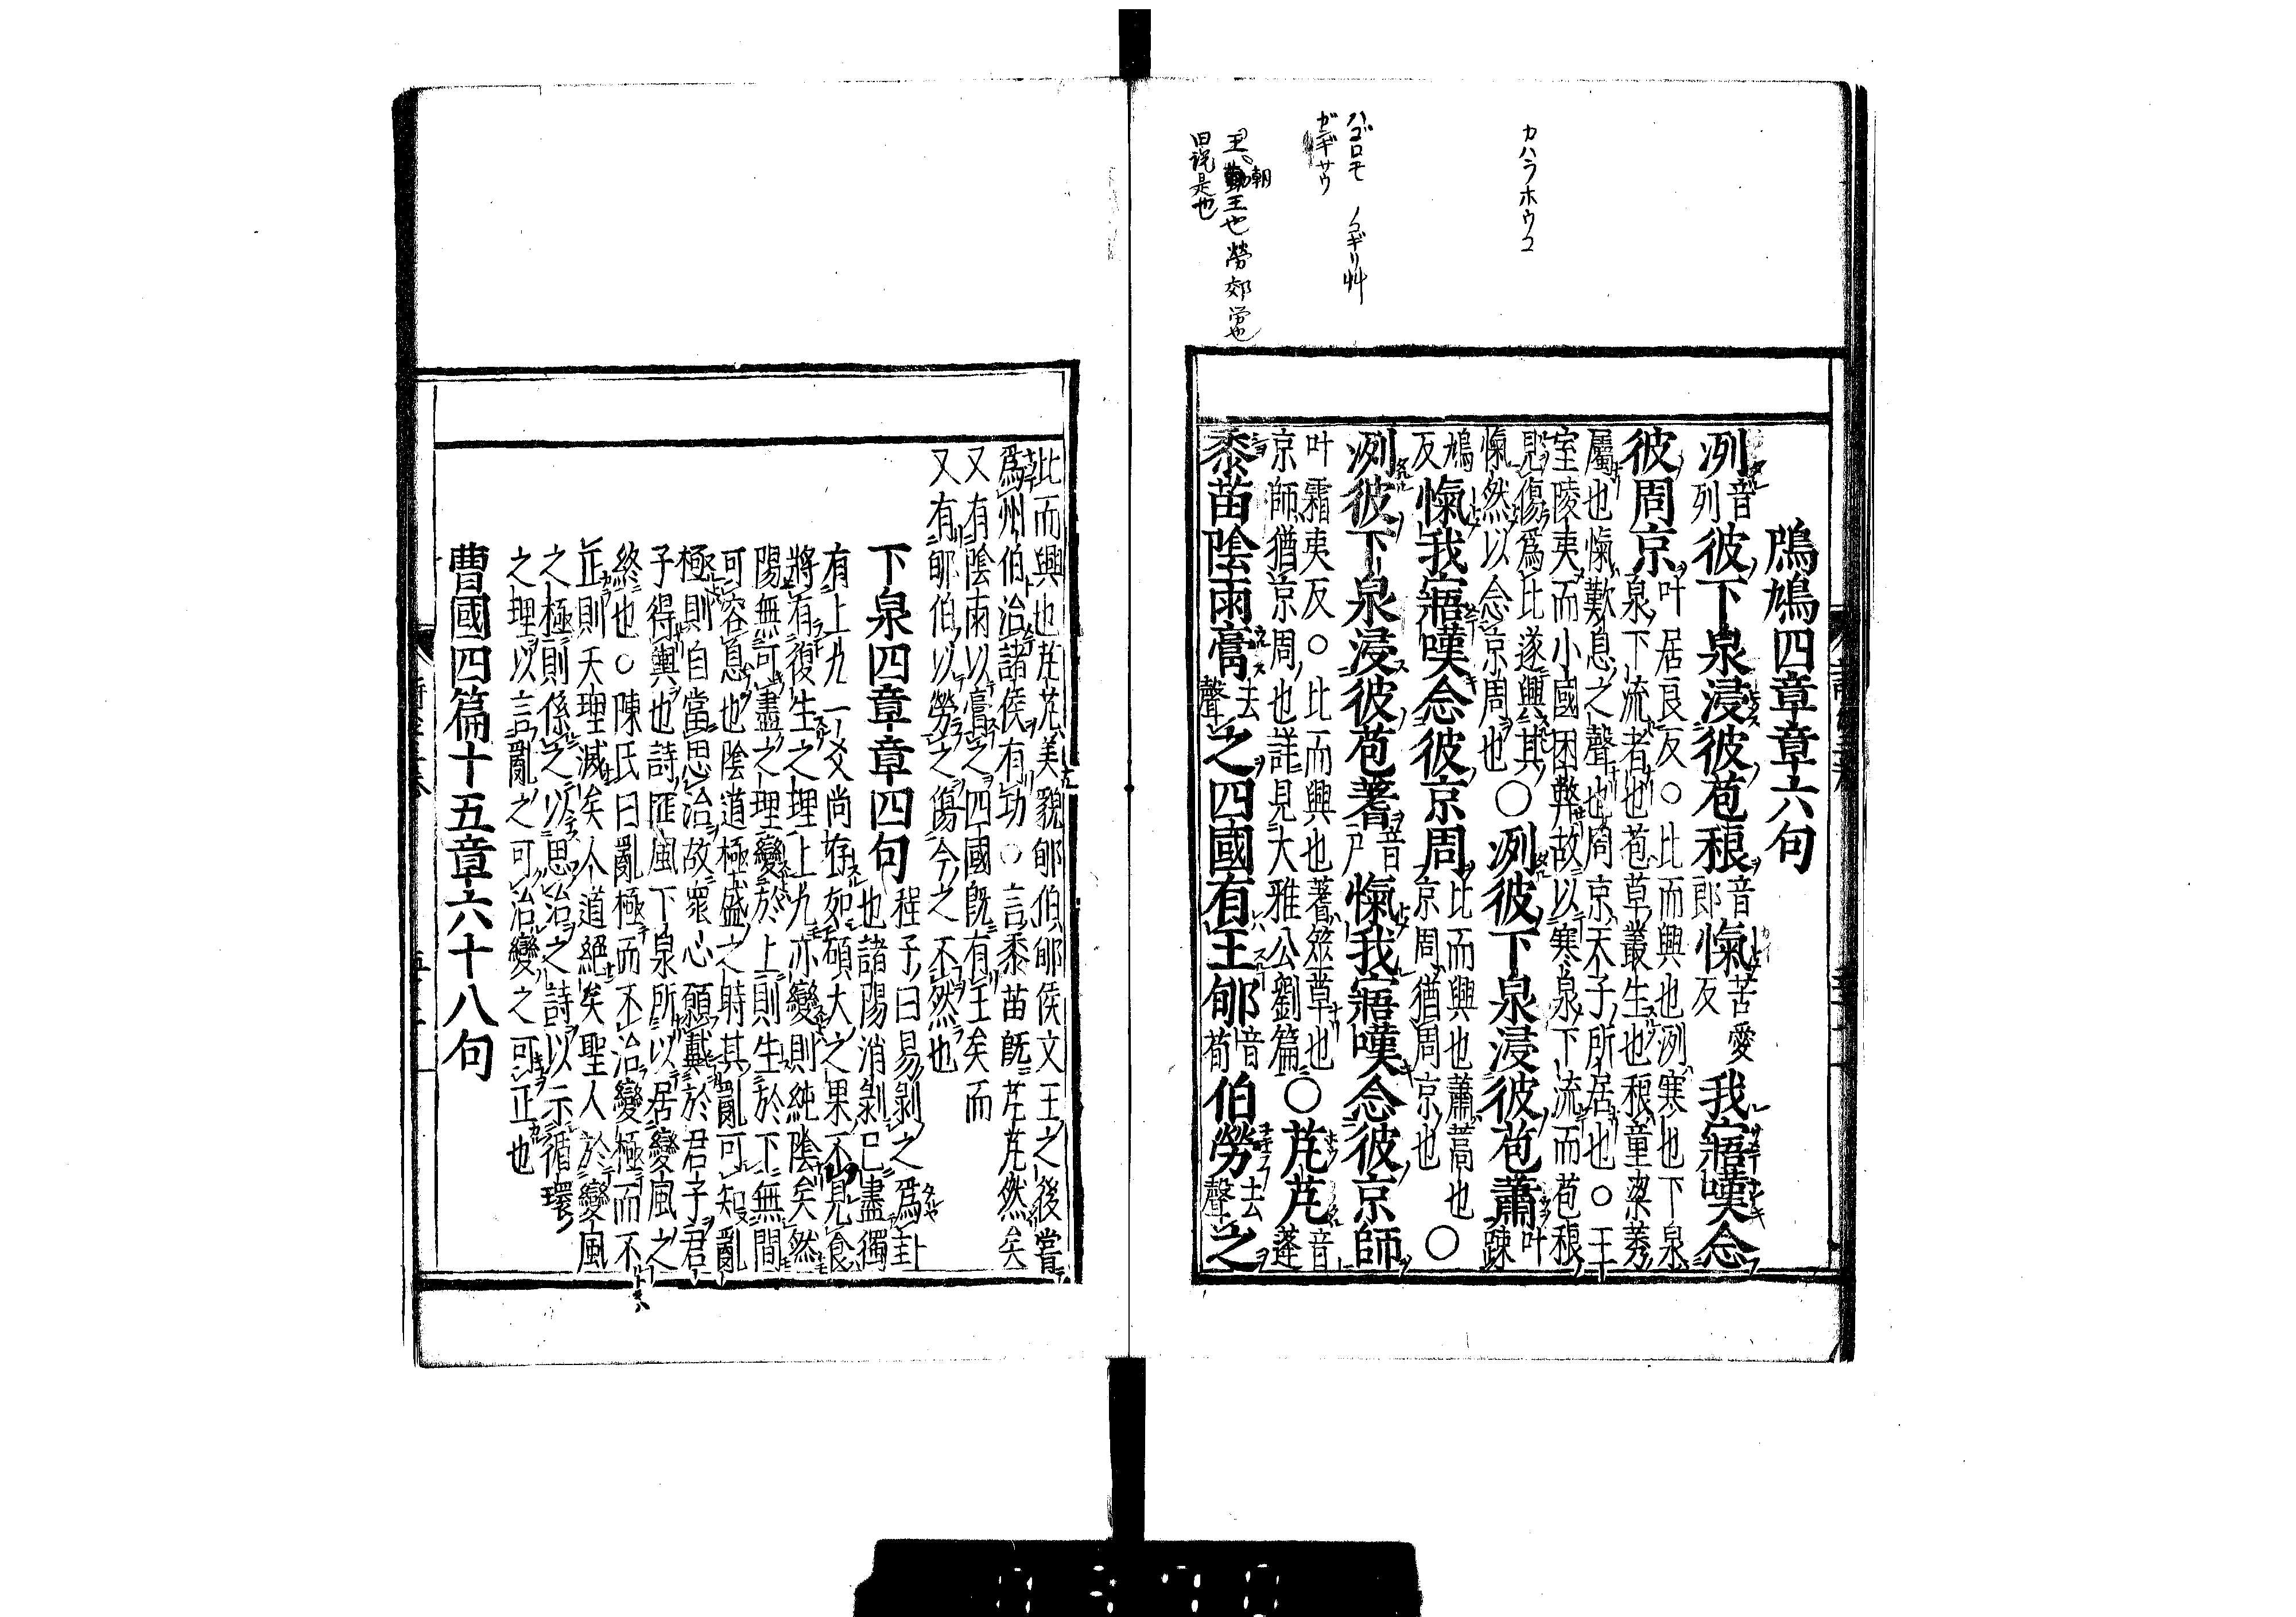 カハラホウコ
ハゴロモ　ノコギリ艸
ガンギサウ
王朝王也勞郊労也
旧説是也
鳲鳩四章章六句
冽音列彼下泉浸彼苞稂音郎愾苦愛反我寤嘆念
彼周京叶居良反○比而興也冽寒也下泉泉下流者也苞草叢生也稂童粱莠
屬也愾歎息之聲也周京天子所居也○王室陵夷而小國困弊故以寒泉下流而苞稂
見傷為比遂興其愾然以念京周也○冽彼下泉浸彼苞蕭叶疎
鳩反愾我寤嘆念彼京周比而興也蕭蒿也京周猶周京也○
冽彼下泉浸彼苞蓍音尸愾我寤嘆念彼京師
叶霜夷反○比而興也蓍筮草也京師猶京周也詳見大雅公劉篇○芃芃音蓬
黍苗陰雨膏去聲之四國有王郇音荀伯勞去聲之
比而興也芃芃美貌郇伯郇侯文王之後嘗為州伯治諸侯有功○言黍苗既芃芃然矣
又有陰雨以膏之四國既有王矣而又有郇伯以勞之傷今之不然也
下泉四章章四句程子曰易剝之為卦也諸陽消剝已盡獨
有上九一爻尚存如碩大之果不見食將有復生之理上九亦變則純陰矣然
陽無可盡之理變於上則生於下無間可容息也陰道極盛之時其亂可知亂
極則自當思治故衆心願戴於君子君子得輿也詩匪風下泉所以居變風之
終也○陳氏曰亂極而不治變極而不正則天理滅矣人道絕矣聖人於變風
之極則係之以思治之詩以示循環之理以言亂之可治變之可正也
曹國四篇十五章六十八句